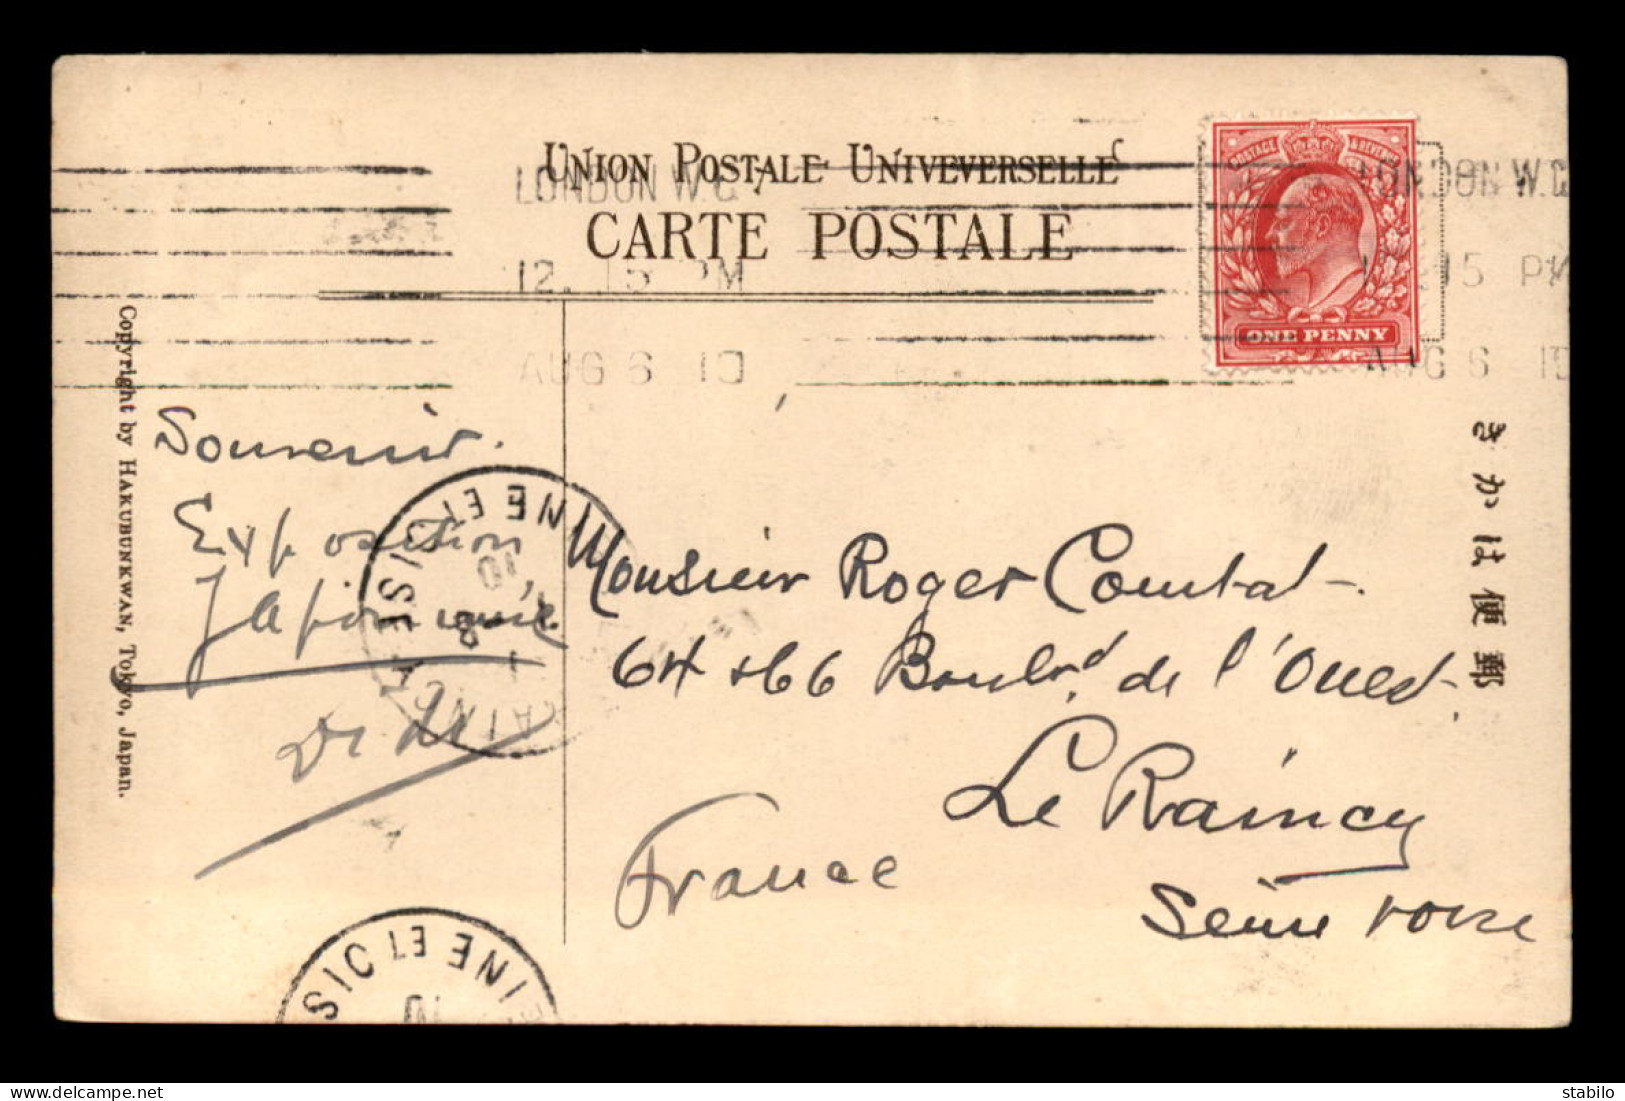 UNION POSTALE UNIVEVERSELLE
CARTE POSTALE
LONDON W.C
12.15 PM
AUG 6 10
POSTAGE & REVENUE
ONE PENNY
LONDON W.C
12.15 PM
AUG 6 10
きかは便郵
Copyright by HAKUBUNKWAN, Tokyo, Japan.
Souvenir.
Exposition
Japonaise
Monsieur Roger Combat.
64 & 66 Boulrd de l'Ouest
Le Raincy
Seine et Oise
France
LE RAINCY SEINE ET OISE
7 - 8
10
SEINE ET OISE
10